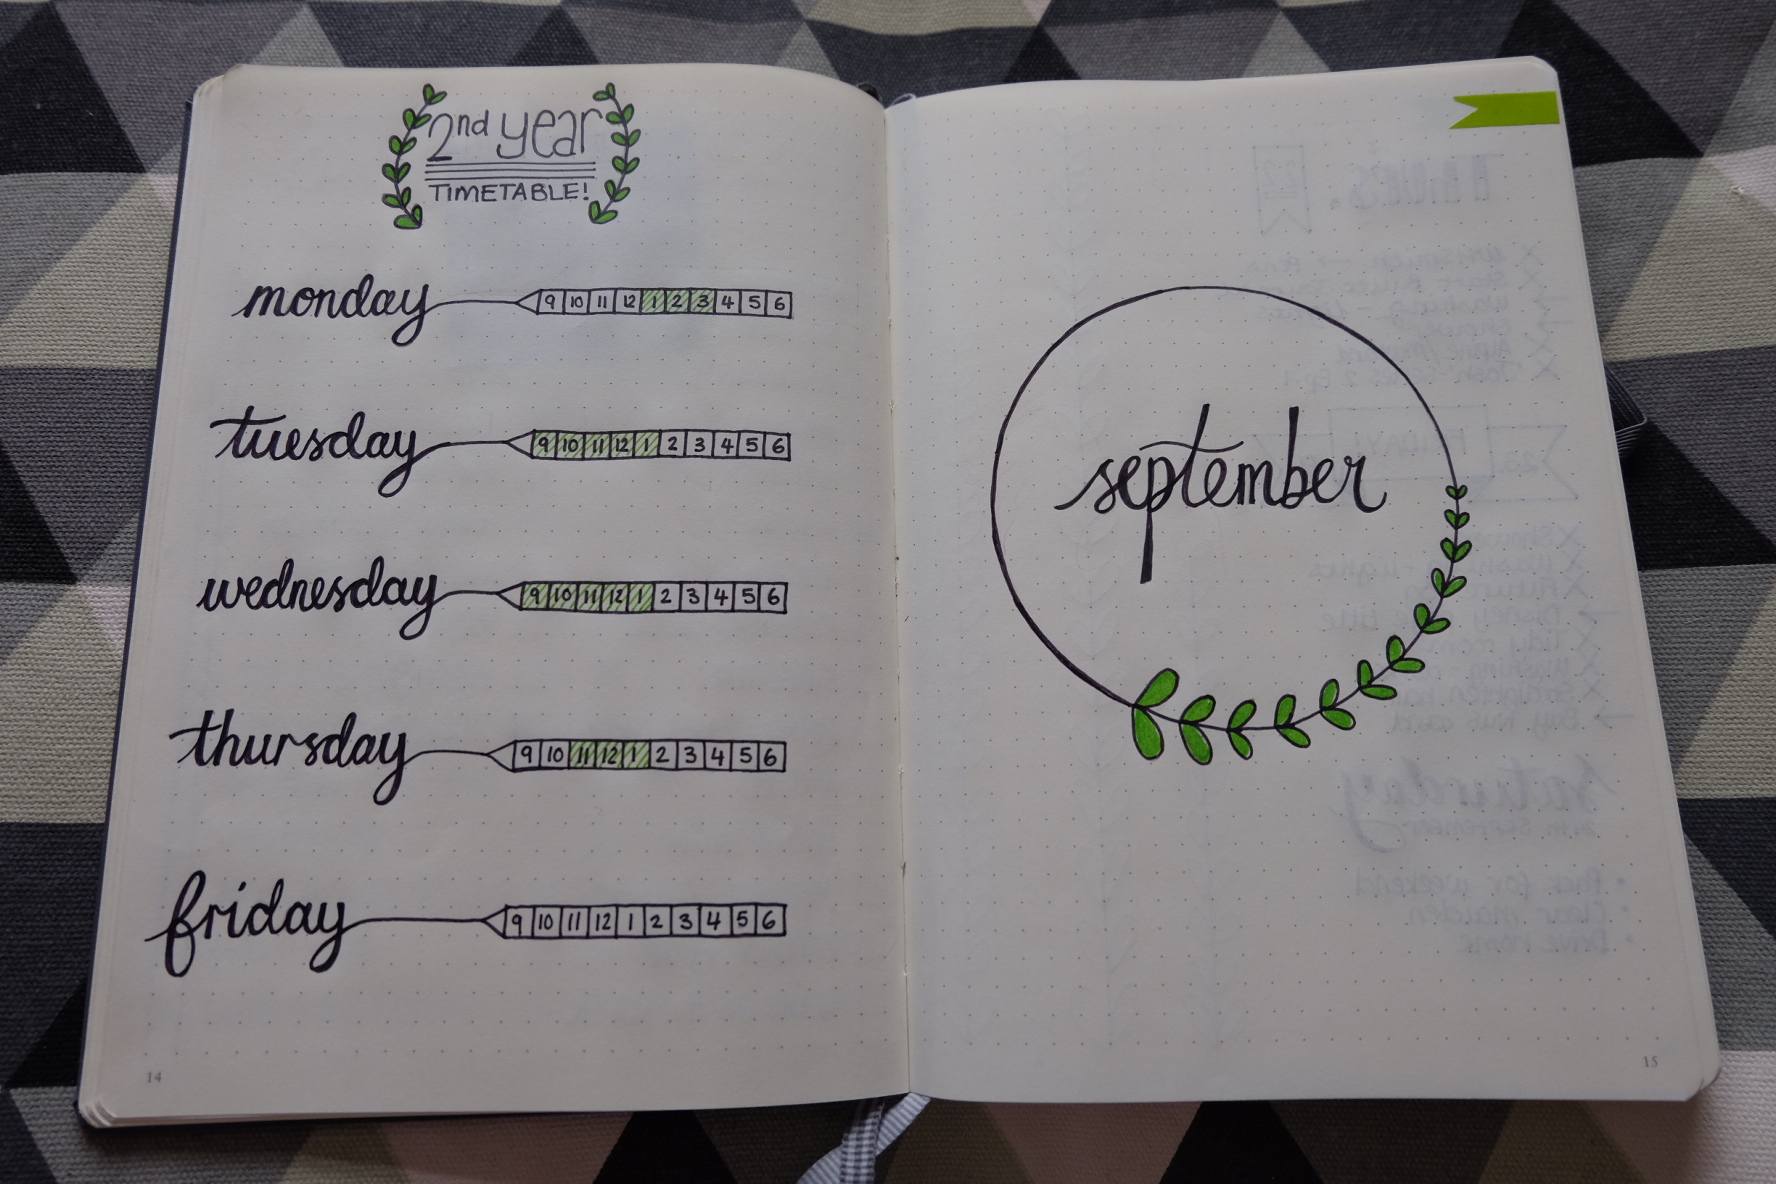 2nd year
TIMETABLE!
monday 9 10 11 12 1 2 3 4 5 6
tuesday 9 10 11 12 1 2 3 4 5 6
wednesday 9 10 11 12 1 2 3 4 5 6
thursday 9 10 11 12 1 2 3 4 5 6
friday 9 10 11 12 1 2 3 4 5 6
14
september
15